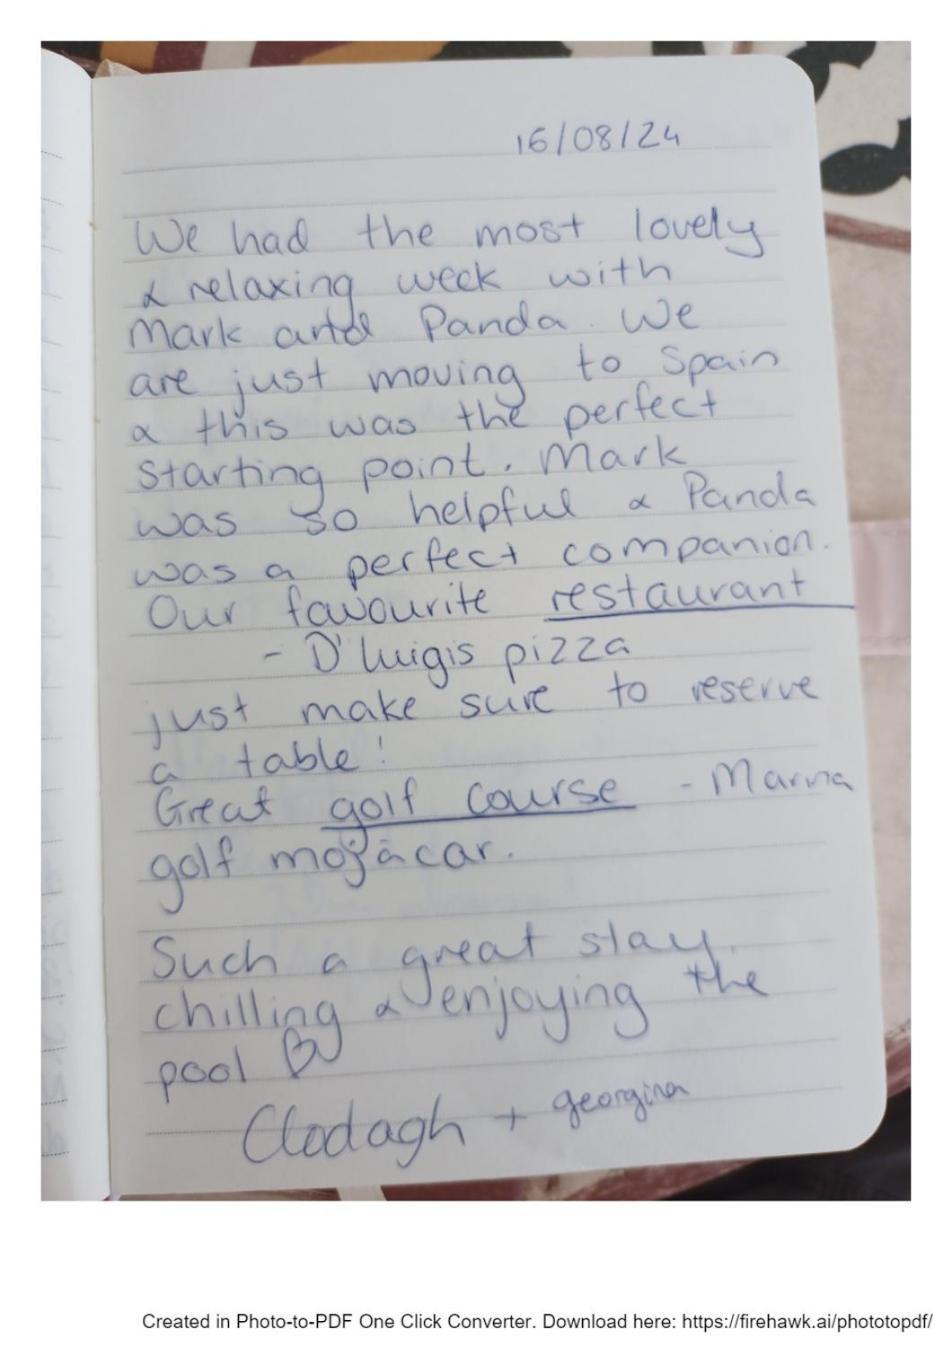 16/08/24
We had the most lovely
& relaxing week with
Mark and Panda. We
are just moving to Spain
& this was the perfect
starting point. Mark
was so helpful & Panda
was a perfect companion.
Our favourite restaurant
- D'luigis pizza
just make sure to reserve
a table!
Great golf course - Marina
golf mojácar.
Such a great stay
chilling & enjoying the
pool
Clodagh + georgina
Created in Photo-to-PDF One Click Converter. Download here: https://firehawk.ai/phototopdf/